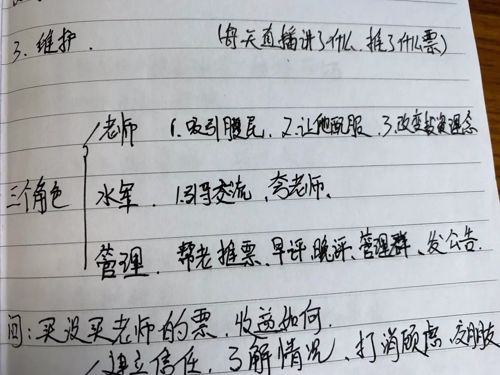 3、维护. (每天直播讲了什么、推了什么票)
老师 1.吸引股民、2.让他佩服、3.改变投资理念
三个角色 水军、1.引导交流、夸老师、
管理、帮老推票、早评、晚评、管理群、发公告.
问:买没买老师的票、收益如何.
建立信任、了解情况、打消顾虑、交朋友